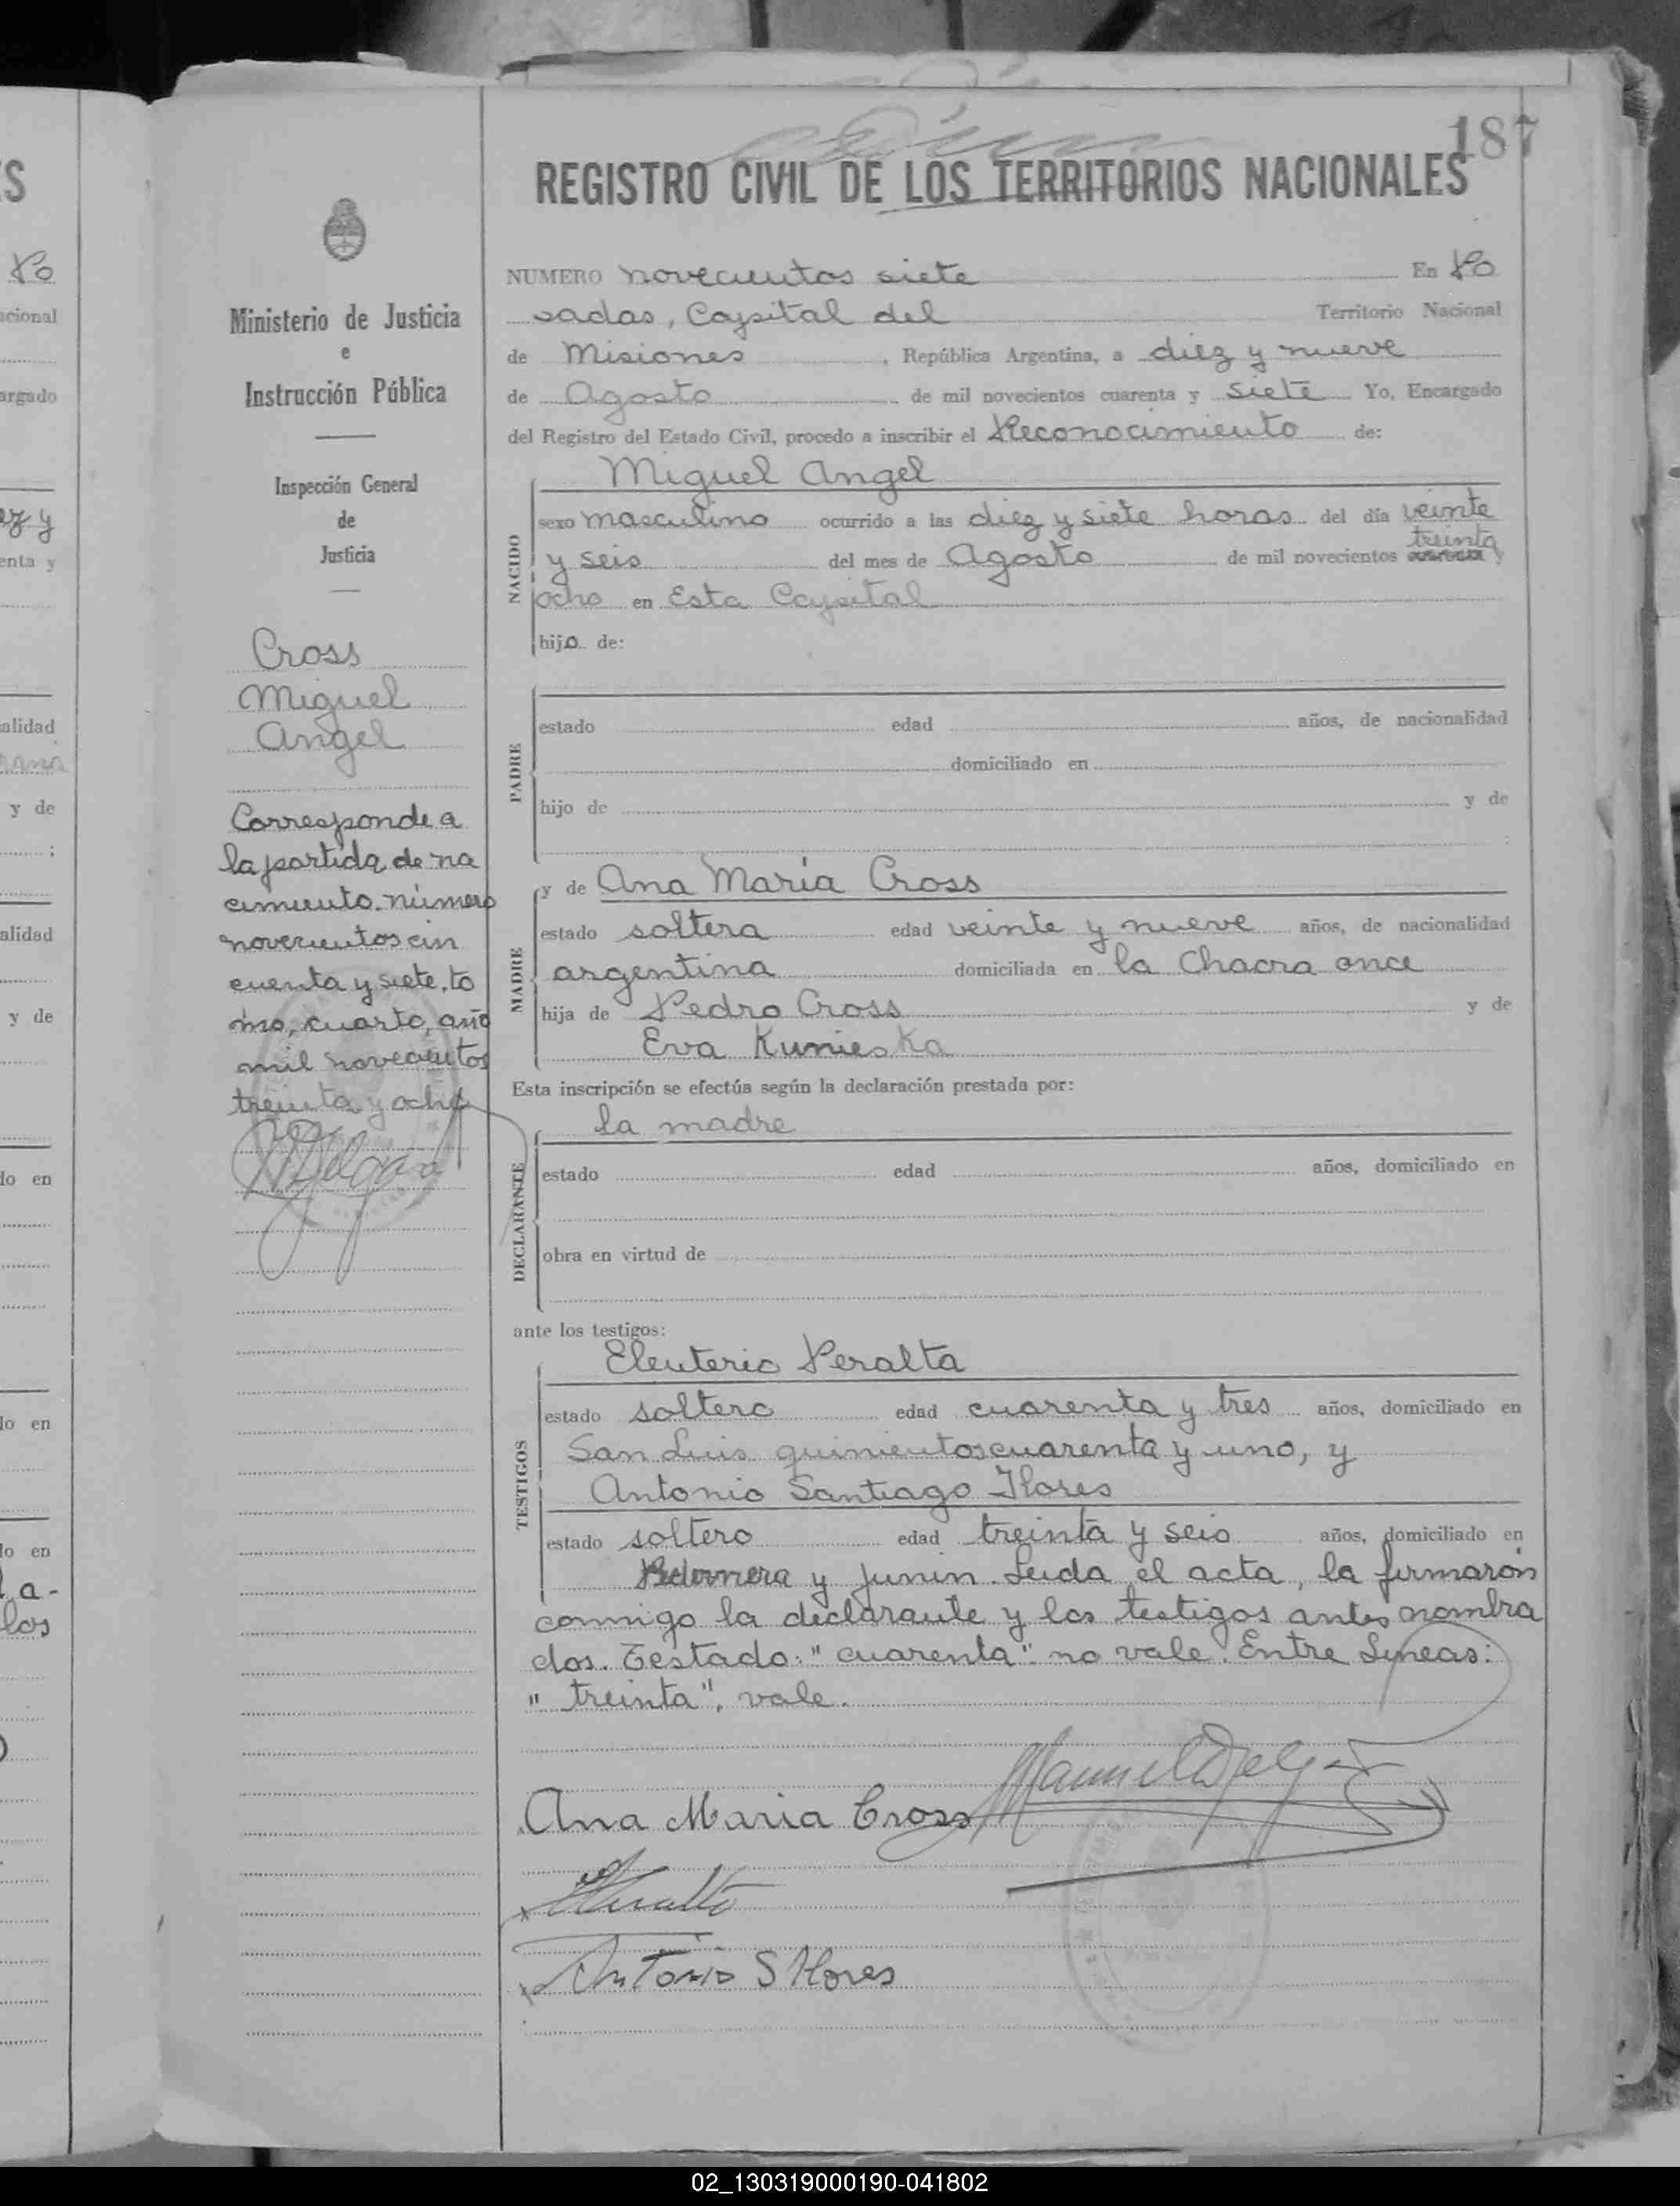 187
REGISTRO CIVIL DE LOS TERRITORIOS NACIONALES
Ministerio de Justicia
e
Instrucción Pública
Inspección General
de
Justicia
Cross
Miguel
Angel
Corresponde a
la partida de na
cimiento número
novecientos cin
cuenta y siete, to
mo, cuarto, año
mil novecientos
treinta y ocho
NUMERO novecientos siete En Po
sadas, Capital del Territorio Nacional
de Misiones, República Argentina, a diez y nueve
de Agosto de mil novecientos cuarenta y siete Yo, Encargado
del Registro del Estado Civil, procedo a inscribir el Reconocimiento de:
Miguel Angel
NACIDO
sexo masculino ocurrido a las diez y siete horas del día veinte
treinta
y seis del mes de Agosto de mil novecientos cuarenta y
ocho en Esta Capital
hijo de:
PADRE
estado edad años, de nacionalidad
domiciliado en
hijo de y de
MADRE
y de Ana María Cross
estado soltera edad veinte y nueve años, de nacionalidad
argentina domiciliada en la Chacra once
hija de Pedro Cross y de
Eva Kunieska
Esta inscripción se efectúa según la declaración prestada por:
la madre
DECLARANTE
estado edad años, domiciliado en
obra en virtud de
ante los testigos:
Eleuterio Peralta
TESTIGOS
estado soltero edad cuarenta y tres años, domiciliado en
San Luis quinientos cuarenta y uno, y
Antonio Santiago Flores
estado soltero edad treinta y seis años, domiciliado en
Pedernera y Junin. Leida el acta, la firmaron
conmigo la declarante y los testigos antes nombra
dos. Testado: "cuarenta" no vale. Entre Lyneas:
"treinta", vale.
Ana Maria Cross
Antonio S Flores
S
Po
acional
argado
ez y
enta y
alidad
y de
alidad
y de
do en
do en
do en
a-
los
02_130319000190-041802